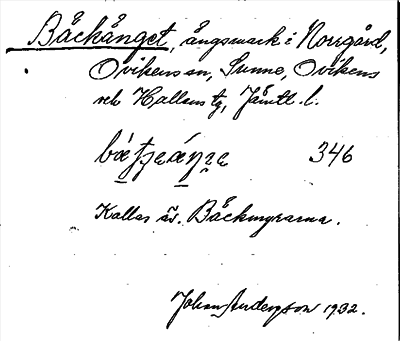 Bäckänget, ängsmark i Norrgård,
Ovikens sn, Sunne, Ovikens
och Hallens tg, Jämtl. l.
346
Kallas äv. Bäckmyrarna.
Johan Anderzson 1932.